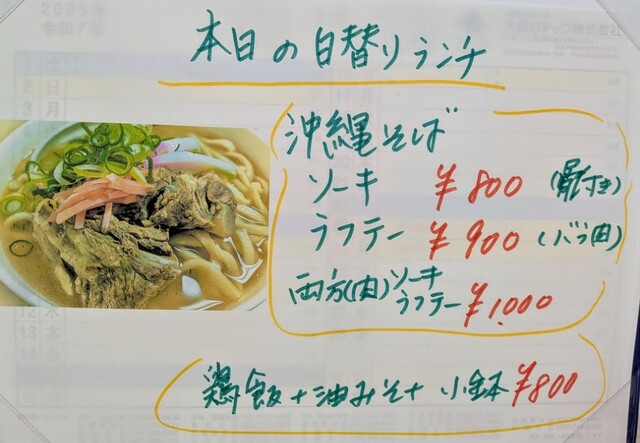 本日の日替りランチ
沖縄そば
ソーキ ¥800 (骨付き)
ラフテー ¥900 (バラ肉)
両方(肉) ソーキ
ラフテー ¥1,000
鶏飯+油みそ+小鉢 ¥800
2025年
令和7年
1 土
2 日
3 月
12 水
13 木
14 金